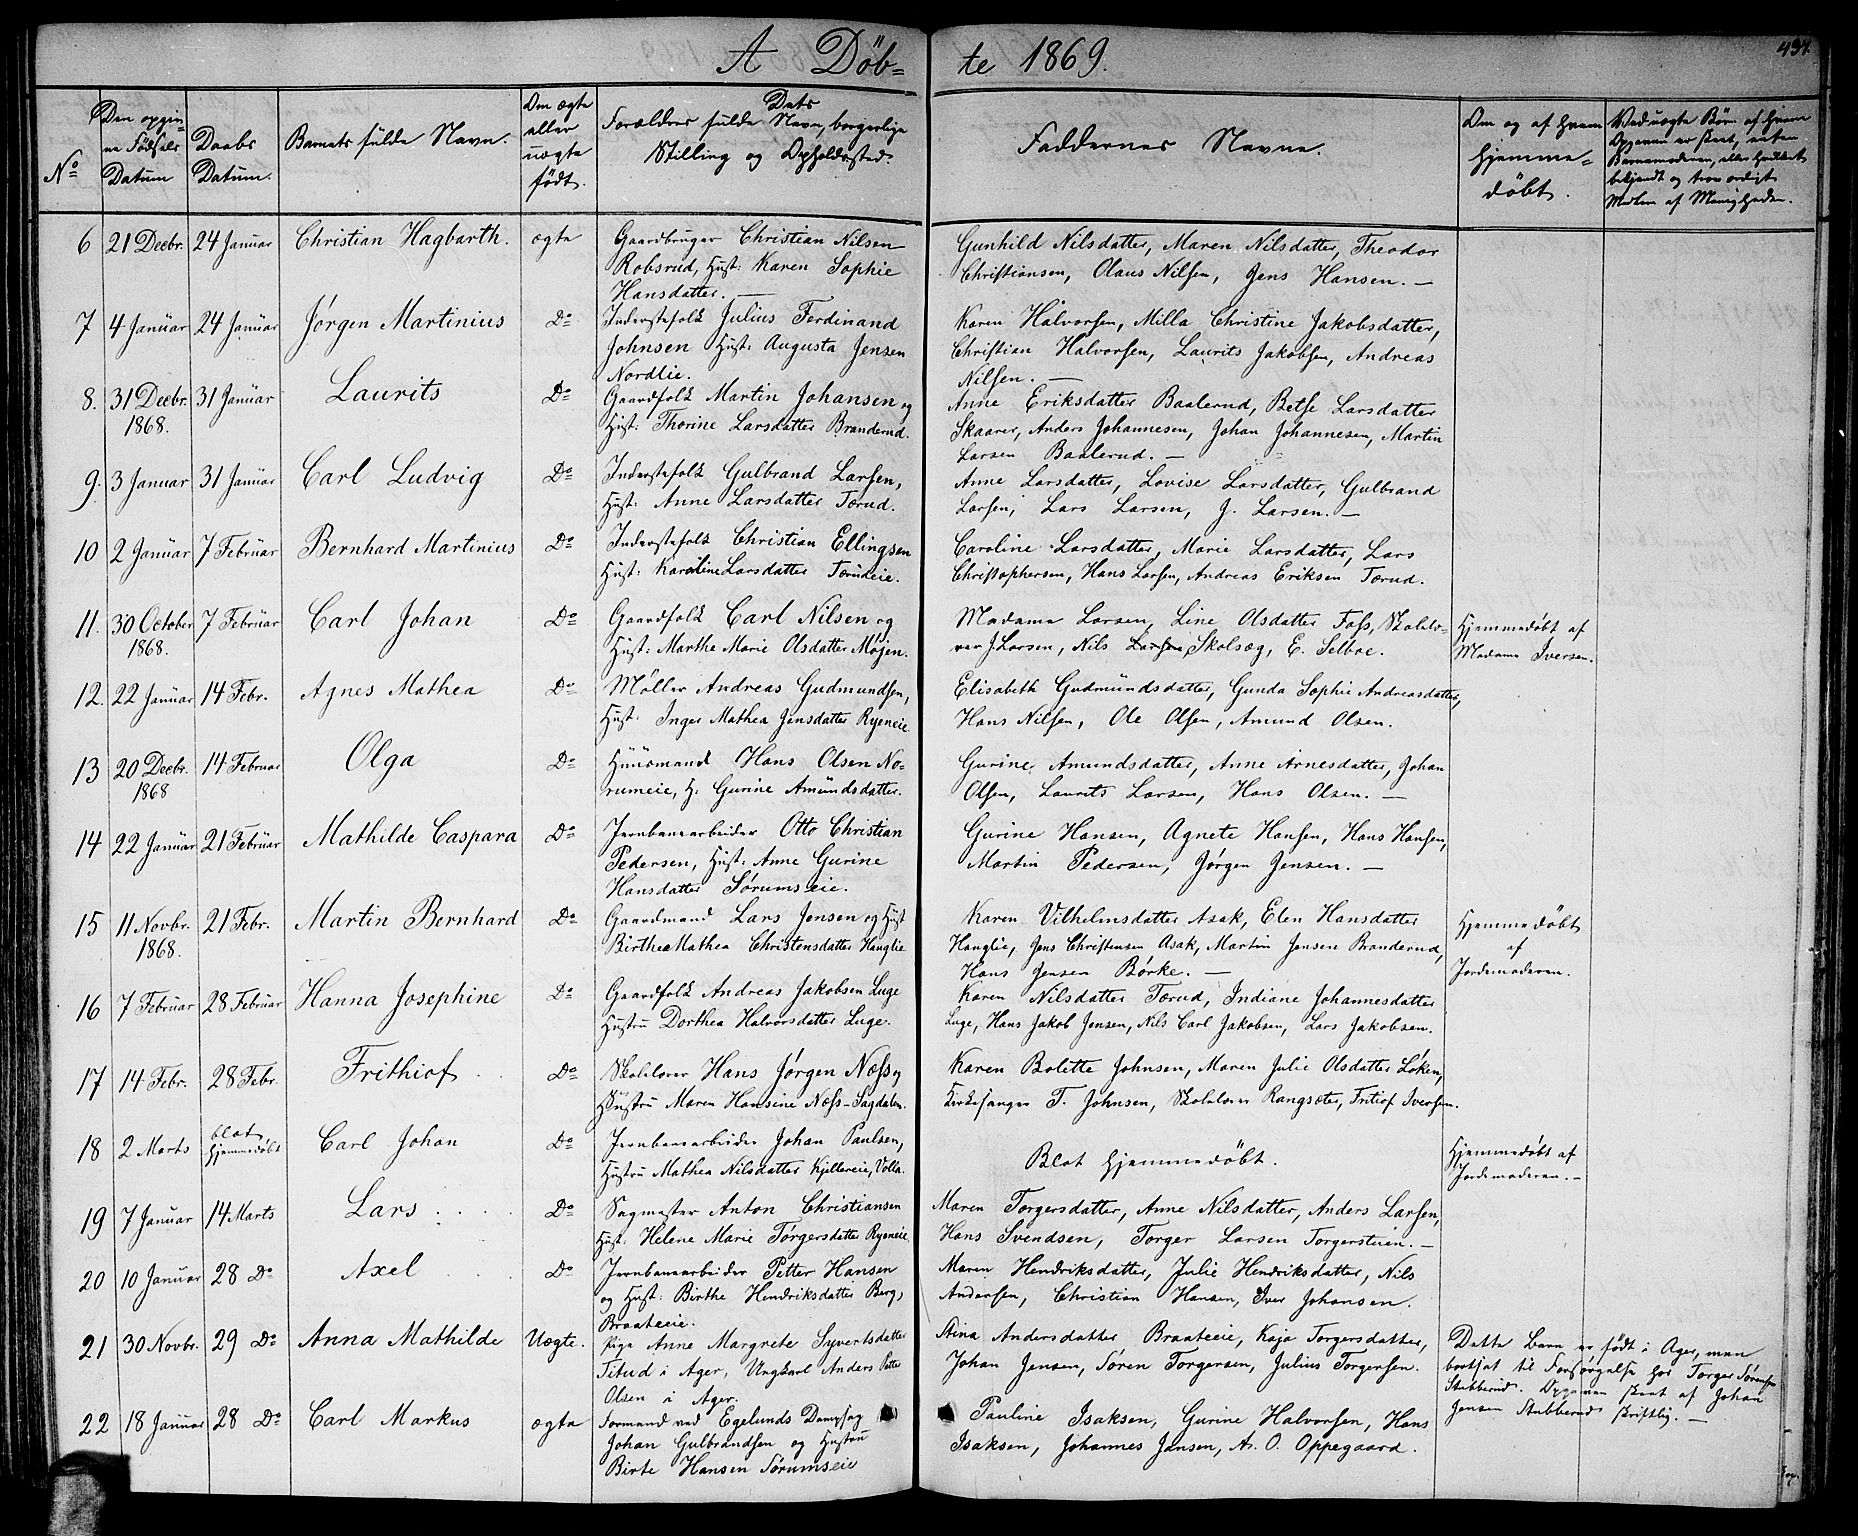 A Döb= te 1869.
431.
No
Den opgiv=
ne Fødsels
Datum
Daabs
Datum.
Barnets fulde Navn.
Om ægte
eller
uægte
født.
Dets
Forældres fulde Navn, borgerlige
Stilling og Opholdssted.
Faddernes Navne.
Om og af hvem
hjemme=
døbt.
Ved uægte Børn af hvem
Opgaven er skeet, enten
Barnemoderen, eller hvilket
bekjendt og troværdigt
Medlem af Menigheden.
6 21 Decbr. 24 Januar Christian Hagbarth. ægte Gaardbruger Christian Nilsen Gunhild Nilsdatter, Maren Nilsdatter, Theodor
Robsrud, Hust: Karen Sophie Christiansen, Olaus Nilsen, Jens Hansen. —
Hansdatter. —
7 4 Januar 24 Januar Jørgen Martinius Do Inderstefolk Julius Ferdinand Karen Halvorsen, Milla Christine Jakobsdatter,
Johnsen Hust: Augusta Jensen Christian Halvorsen, Laurits Jakobsen, Andreas
Nordlie. Nilsen. —
8. 31 Decbr. 31 Januar Laurits Do Gaardfolk Martin Johansen og Anne Eriksdatter Baalerud, Betse Larsdatter
1868. Hust: Thorine Larsdatter Branderud. Skaarer, Anders Johannesen, Johan Johannesen, Martin
Larsen Baalerud. —
9. 3 Januar 31 Januar Carl Ludvig Do Inderstefolk Gulbrand Larsen, Anne Larsdatter, Lovise Larsdatter, Gulbrand
Hust: Anne Larsdatter Tærud. Larsen, Lars Larsen, J. Larsen. —
10 2 Januar 7 Februar Bernhard Martinius Do Inderstefolk Christian Ellingsen Caroline Larsdatter, Marie Larsdatter, Lars
Hust: Karoline Larsdatter Tærudeie. Christophersen, Hans Larsen, Andreas Eriksen Tærud.
11. 30 October 7 Februar Carl Johan Do Gaardfolk Carl Nilsen og Madame Larsen, Line Olsdatter Foss, Skolelæ- Hjemmedøbt af
1868. Hust: Marthe Marie Olsdatter Møjen. rer J Larsen, Nils Larsen Skolsæg, E. Selboe. Madame Iversen.
12. 22 Januar 14 Febr. Agnes Mathea Do Møller Andreas Gudmundsen, Elisabeth Gudmundsdatter, Gunda Sophie Andreasdatter,
Hust: Inger Mathea Jensdatter Ryeneie. Hans Nilsen, Ole Olsen, Amund Olsen.
13 20 Decbr. 14 Februar Olga Do Huusmand Hans Olsen No- Gurine Amundsdatter, Anne Arnesdatter, Johan
1868 rumeie, H: Gurine Amundsdatter. Olsen, Laurits Larsen, Hans Olsen. —
14 22 Januar 21 Februar Mathilde Caspara Do Jernbanearbeider Otto Christian Gurine Hansen, Agnete Hansen, Hans Hansen,
Pedersen, Hust: Anne Gurine Martin Pedersen, Jørgen Jensen. —
Hansdatter Sørumseie.
15 11 Novbr. 21 Febr. Martin Bernhard Do Gaardmand Lars Jensen og Hust Karen Vilhelmsdatter Asak, Elen Hansdatter Hjemmedøbt
1868. Birthe Mathea Christensdatter Hauglie Hauglie, Jens Christensen Asak, Martin Jensen Branderud, af
Hans Jensen Børke. — Jordemoderen.
16 7 Februar 28 Februar Hanna Josephine Do Gaardfolk Andreas Jakobsen Luge Karen Nilsdatter Tærud, Indiane Johannesdatter
Hustru Dorthea Halvorsdatter Luge. Luge, Hans Jakob Jensen, Nils Carl Jakobsen, Lars Jakobsen.
17 14 Febr. 28 Febr. Frithiof Do Skolelærer Hans Jørgen Næss og Karen Bolette Johnsen, Maren Julie Olsdatter Løken,
Hustru Maren Hansine Næss-Sagdalen. Kirkesanger T. Johnsen, Skolelærer Rangsæter, Fritiof Iversen.
18 2 Marts blot hjemmedøbt Carl Johan Do Jernbanearbeider Johan Paulsen, Blot hjemmedøbt. Hjemmedøbt af
Hustru Mathea Nilsdatter Kjellereie, Volla. Jordemoderen. —
19 7 Januar 14 Marts Lars Do Sagmester Anton Christiansen Maren Torgersdatter, Anne Nilsdatter, Anders Larsen,
Hust: Helene Marie Torgersdatter Ryeneie. Hans Svendsen, Torger Larsen Torgerstuen. —
20 10 Januar 28 Do Axel Do Jernbanearbeider Petter Hansen Maren Hendriksdatter, Julie Hendriksdatter, Nils
og Hust: Birthe Hendriksdatter Berg, Andersen, Christian Hansen, Iver Johansen.
Braateeie.
21 30 Novbr. 29 Do Anna Mathilde Uægte. Pige Anne Margrete Syvertsdatter Stina Andersdatter Braateeie, Kaja Torgersdatter, Dette Barn er født i Ager, men
Titud i Ager, Ungkarl Anders Petter Johan Jensen, Søren Torgersen, Julius Torgersen. bortsat til Forsørgelse hos Torger Sørensen
Olsen i Ager. Stubberud. Opgaven skeet af Johan
Jensen Stubberud skriftlig. —
22 18 Januar 28 Do Carl Markus ægte Formand ved Egelunds Dampsag Pauline Isaksen, Gurine Halvorsen, Hans
Johan Gulbrandsen og Hustru Isaksen, Johannes Jansen, A. O. Oppegaard.
Birte Hansen Sørumseie